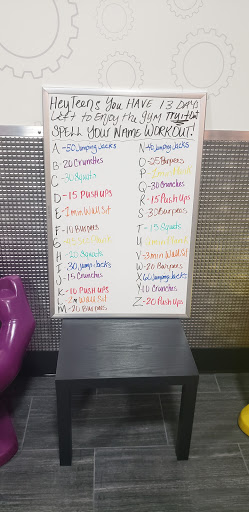 Hey Teens You HAVE 13 DAYS
Left to Enjoy the gym
SPELL YOUR NAME WORKOUT!
A - 50 Jumping Jacks
B 20 Crunches
C - 30 Squats
D - 15 Push ups
E - 1 min Wall Sit
F - 10 Burpees
G
H - 20 Squats
I 30 Jump Jacks
J - 15 Crunches
K - 10 Push ups
L - 2 m Wall Sit
M - 20 Burpees
N - 40 Jumping Jacks
O - 25 Burpees
P
Q - 30 Crunches
R - 15 Push Ups
S - 30 Burpees
T - 15 Squats
U
V - 3 min Wall Sit
W - 20 Burpees
X 60 Jumping Jacks
Y 10 Crunches
Z - 20 Push Ups